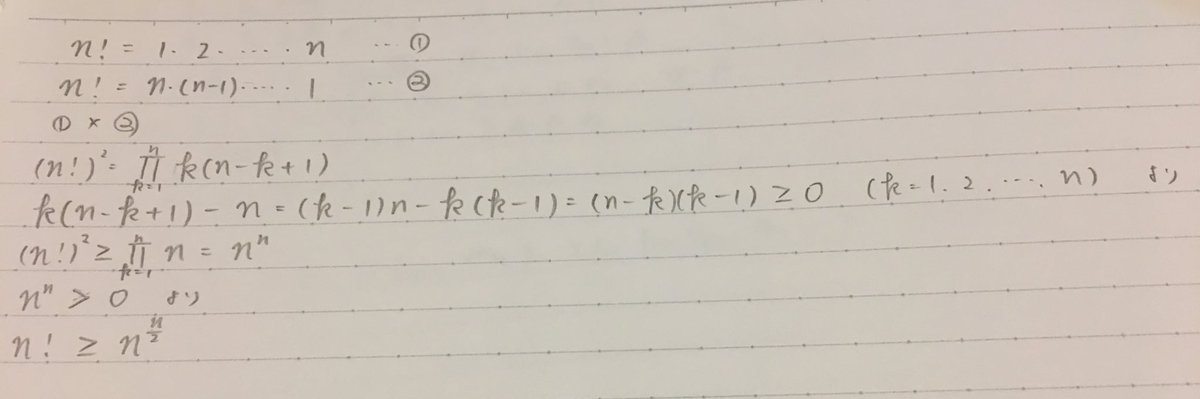 n! = 1 · 2 · ⋯ · n ⋯ ①
n! = n·(n-1)·⋯· 1 ⋯ ②
① × ②
(n!)² = ∏_{k=1}^{n} k(n-k+1)
k(n-k+1) - n = (k-1)n - k(k-1) = (n-k)(k-1) ≥ 0 (k=1, 2, ⋯, n) より
(n!)² ≥ ∏_{k=1}^{n} n = nⁿ
nⁿ > 0 より
n! ≥ n^{n/2}